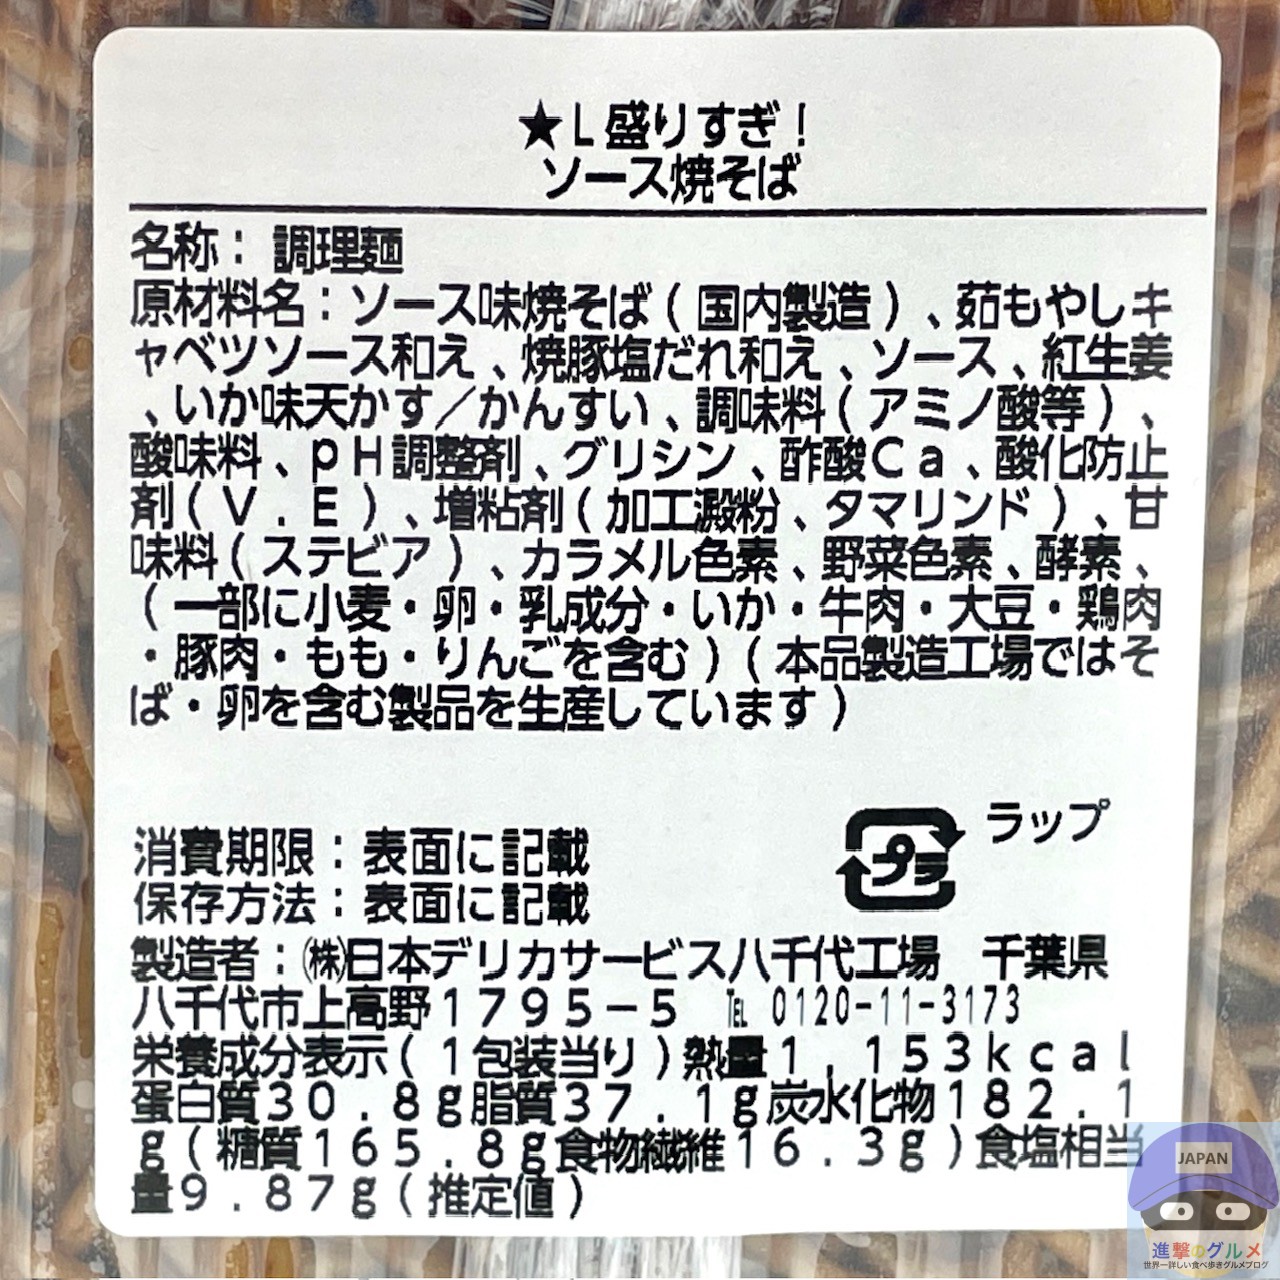 ★L盛りすぎ！
ソース焼そば
名称：調理麺
原材料名：ソース味焼そば（国内製造）、茹もやしキ
ャベツソース和え、焼豚塩だれ和え、ソース、紅生姜
、いか味天かす／かんすい、調味料（アミノ酸等）、
酸味料、ｐＨ調整剤、グリシン、酢酸Ｃａ、酸化防止
剤（Ｖ．Ｅ）、増粘剤（加工澱粉、タマリンド）、甘
味料（ステビア）、カラメル色素、野菜色素、酵素、
（一部に小麦・卵・乳成分・いか・牛肉・大豆・鶏肉
・豚肉・もも・りんごを含む）（本品製造工場ではそ
ば・卵を含む製品を生産しています）
プラ
ラップ
消費期限：表面に記載
保存方法：表面に記載
製造者：㈱日本デリカサービス八千代工場　千葉県
八千代市上高野１７９５－５　℡0120-11-3173
栄養成分表示（１包装当り）熱量１，１５３ｋｃａｌ
蛋白質３０．８ｇ脂質３７．１ｇ炭水化物１８２．１
ｇ（糖質１６５．８ｇ食物繊維１６．３ｇ）食塩相当
量９．８７ｇ（推定値）
JAPAN
進撃のグルメ
世界一詳しい食べ歩きグルメブログ